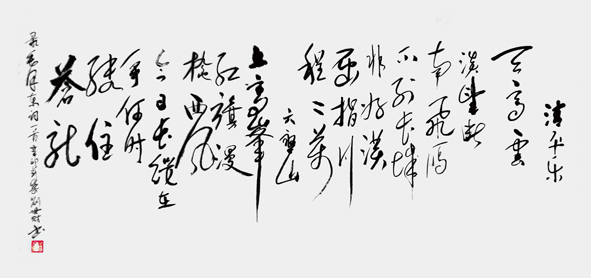 清平乐
天高雲
淡望断
南飞雁
不到长城
非好漢
屈指行
程二萬
六盘山
上高峰
红旗漫
捲西风
今日长缨在
手何时
缚住
蒼龙
录毛泽东词一首辛卯